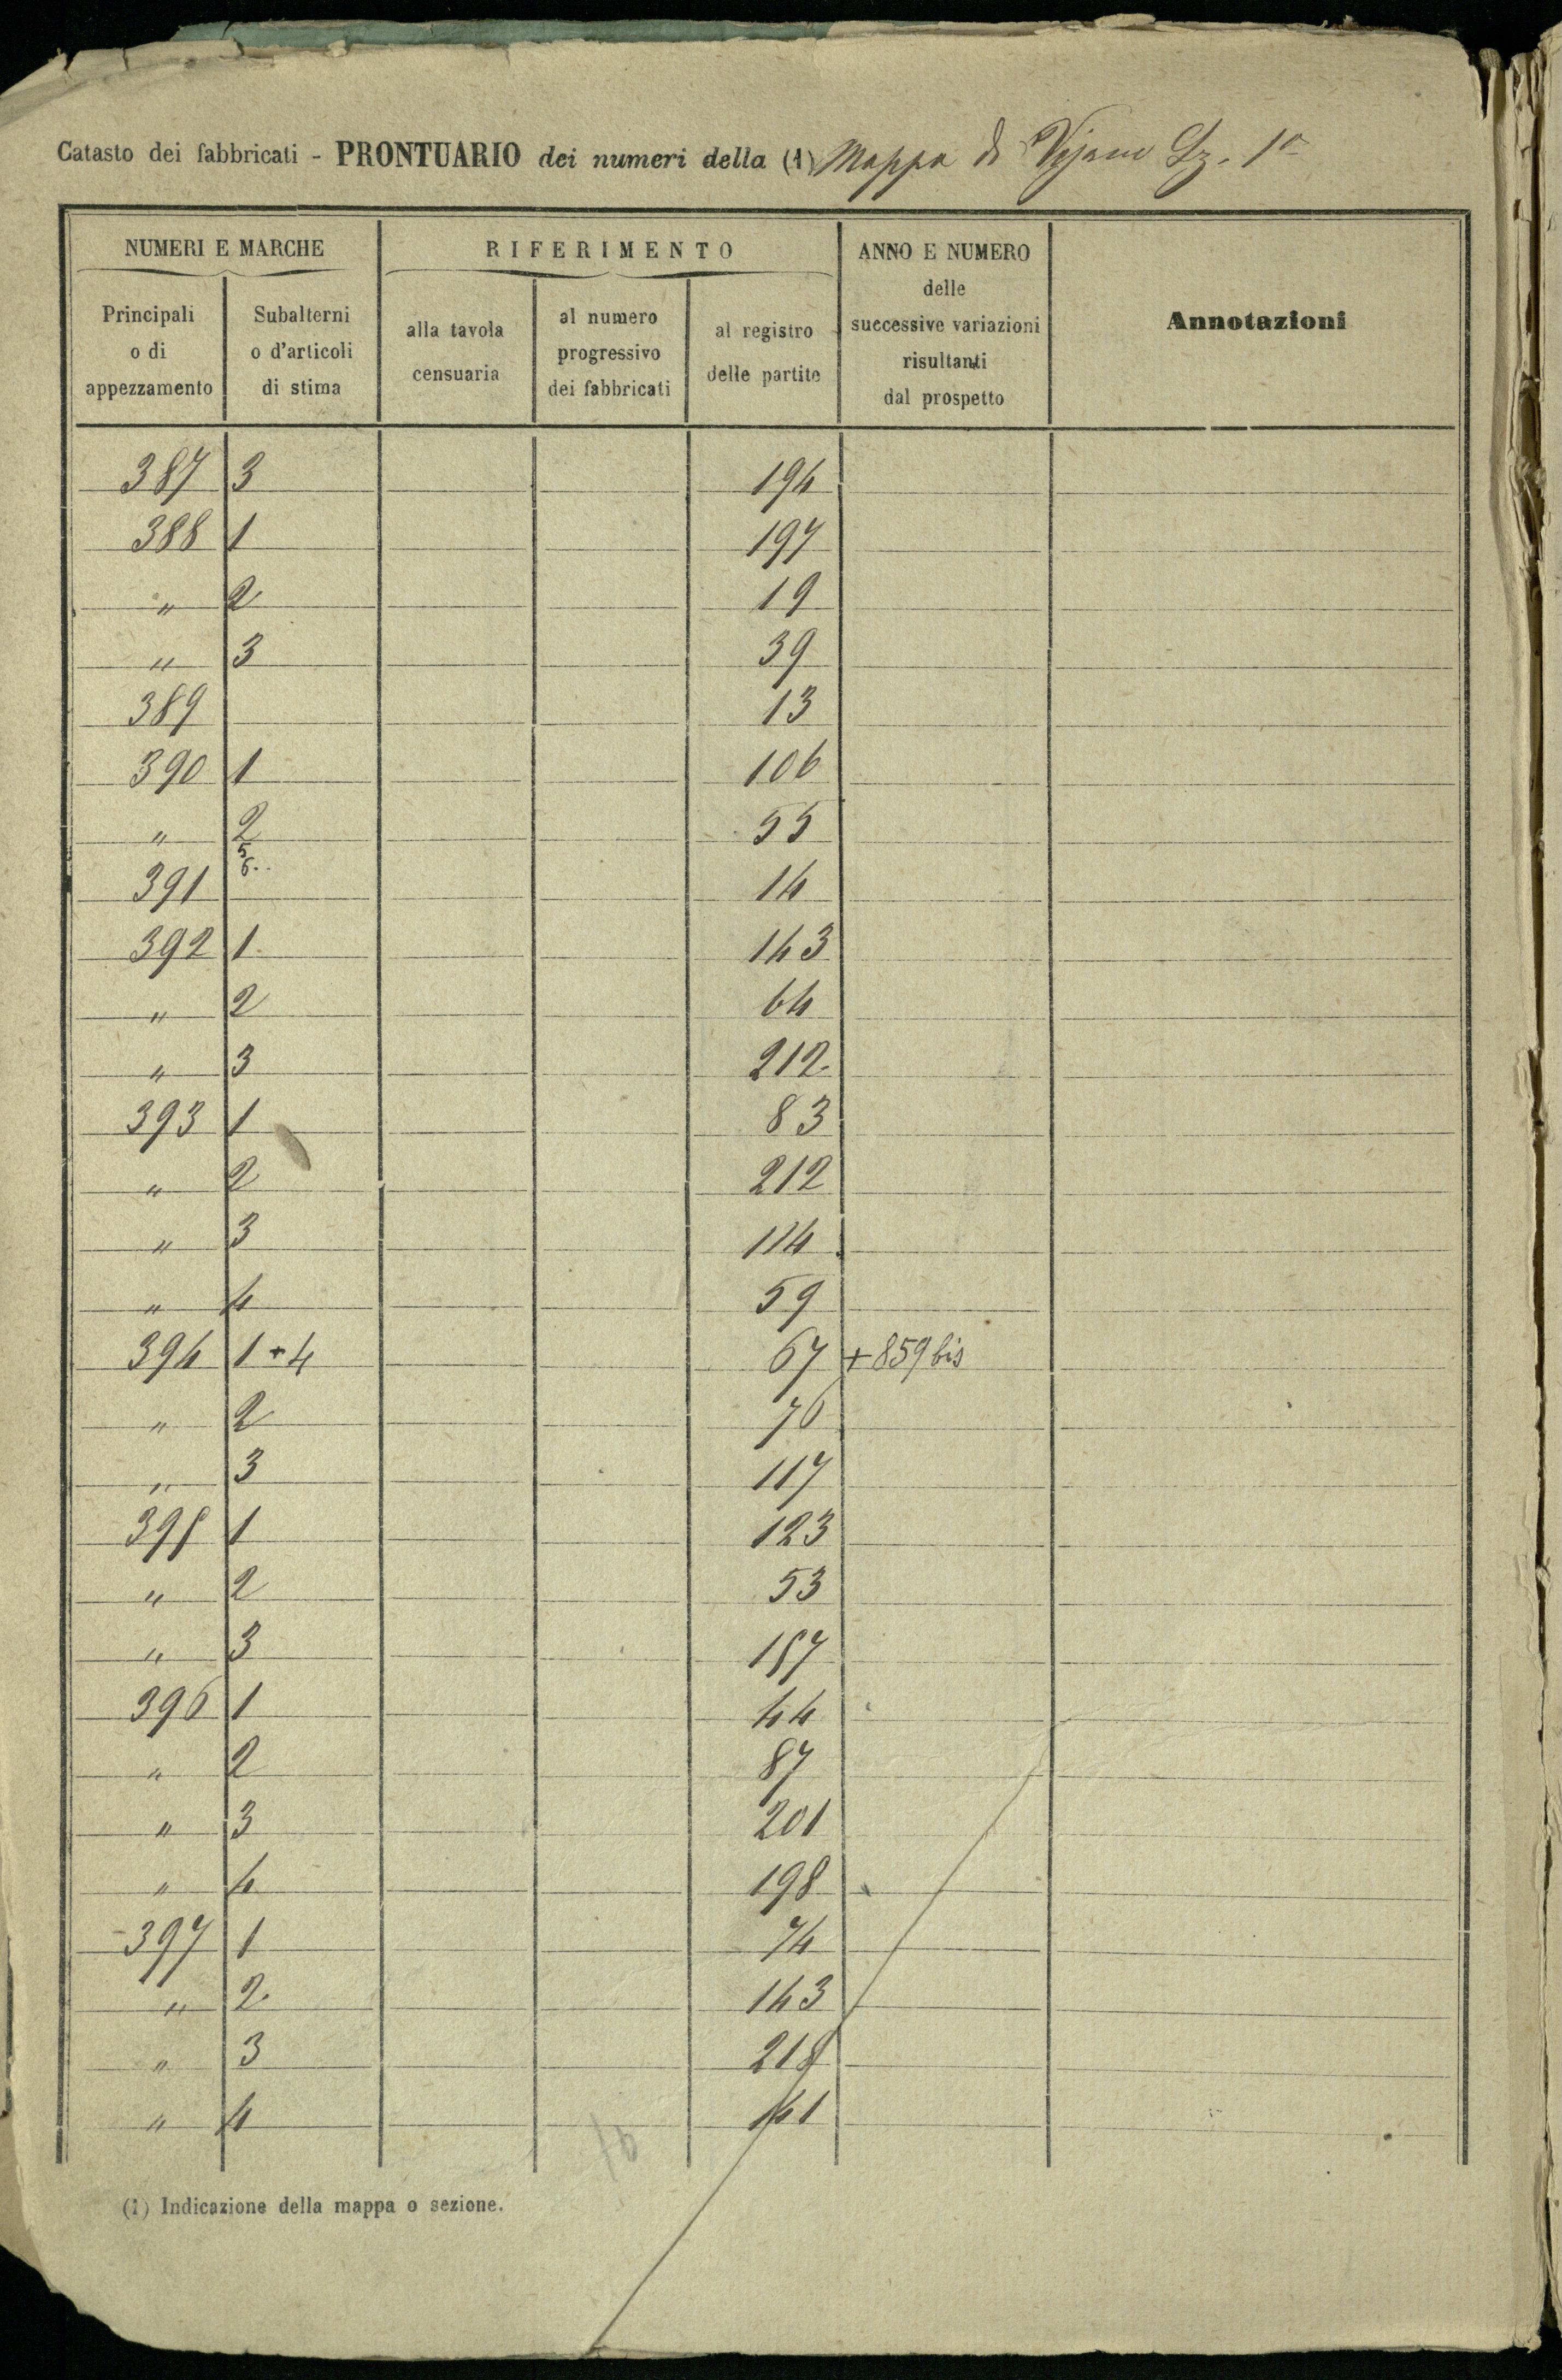 Catasto dei fabbricati - PRONTUARIO dei numeri della (1) Mappa di Vejano Sz. 1a
NUMERI E MARCHE
Principali o di appezzamento
Subalterni o d'articoli di stima
RIFERIMENTO
alla tavola censuaria
al numero progressivo dei fabbricati
al registro delle partite
ANNO E NUMERO delle successive variazioni risultanti dal prospetto
Annotazioni
387 3 194
388 1 197
" 2 19
" 3 39
389 13
390 1 106
" 2 55
5
6
391 14
392 1 143
" 2 64
" 3 212
393 1 83
" 2 212
" 3 114
" 4 59
394 1+4 67 +859 bis
" 2 76
" 3 117
395 1 123
" 2 53
" 3 157
396 1 44
" 2 87
" 3 201
" 4 198
397 1 74
" 2 143
" 3 218
" 4 141
(1) Indicazione della mappa o sezione.